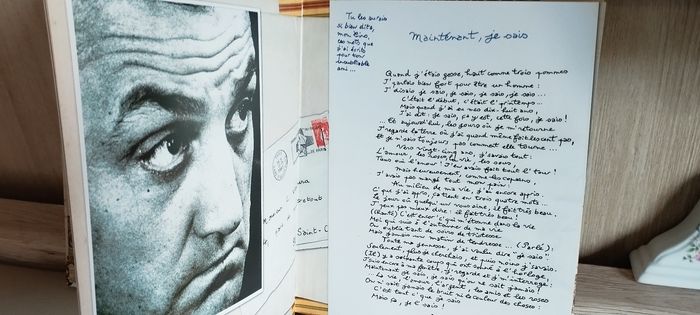 Tu les aurais
si bien dits,
mon Lino,
ces mots que
j'ai écrits
pour ton
inoubliable
ami ...
Maintenant, je sais
Quand j'étais gosse, haut comme trois pommes
J'parlais bien fort pour être un homme :
J'disais je sais, je sais, je sais, je sais ...
C'était l'début, c'était l'printemps ...
Mais quand j'ai eu mes dix-huit ans,
J'ai dit : je sais, ça y'est, cette fois, je sais !
... Et aujourd'hui, les jours où je m'retourne
J'regarde la terre où j'ai quand même fait les cent pas,
Et je n'sais toujours pas comment elle tourne ...
Vers vingt-cinq ans, j'savais tout :
L'amour, les roses, la vie, les sous,
Tiens oui l'amour ! J'en avais fait tout l'tour !
Mais heureusement, comme les copains,
J'avais pas mangé tout mon pain :
Au milieu de ma vie, j'ai encore appris.
C'que j'ai appris, ça tient en trois quatre mots ...
Le jour où quelqu'un vous aime, il fait très beau,
J'peux pas mieux dire : il fait très beau !
(chanté) C'est encor' c'qui m'étonne dans la vie
Moi qui suis à l'automne de ma vie
On oublie tant de soirs de tristesse
Mais jamais un matin de tendresse ... (Parlé) :
Toute ma jeunesse, j'ai voulu dire "je sais"
Seulement, plus je cherchais, et puis moins j'savais.
Il y a soixante coups qui ont sonné à l'horloge
J'suis encore à ma fenêtre, je regarde et je m'interroge :
Maintenant je sais, je sais qu'on ne sait jamais !
La vie, l'amour, l'argent, les amis et les roses
On n'sait jamais le bruit ni la couleur des choses :
C'est tout c'que je sais
Mais ça, je l'sais !